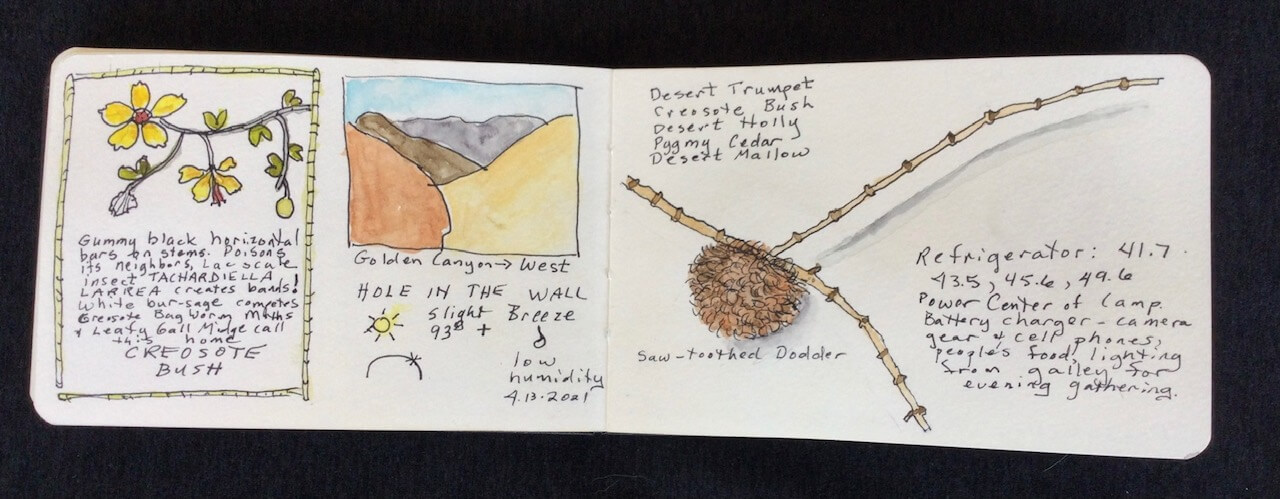 Gummy black horizontal
bars on stems. Poisons
its neighbors, Lac scale
insect TACHARDIELLA
LARREA creates bands!
White bur-sage competes
Creosote Bagworm Moths
& Leafy Gall Midge call
this home
CREOSOTE
BUSH
Golden Canyon → West
HOLE IN THE WALL
slight Breeze
93° +
low
humidity
4.13.2021
Desert Trumpet
Creosote Bush
Desert Holly
Pygmy Cedar
Desert Mallow
Saw-toothed Dodder
Refrigerator: 41.7
43.5, 45.6, 49.6
Power Center of Camp.
Battery charger - camera
gear & cell phones,
people's food, lighting
from galley for
evening gathering.